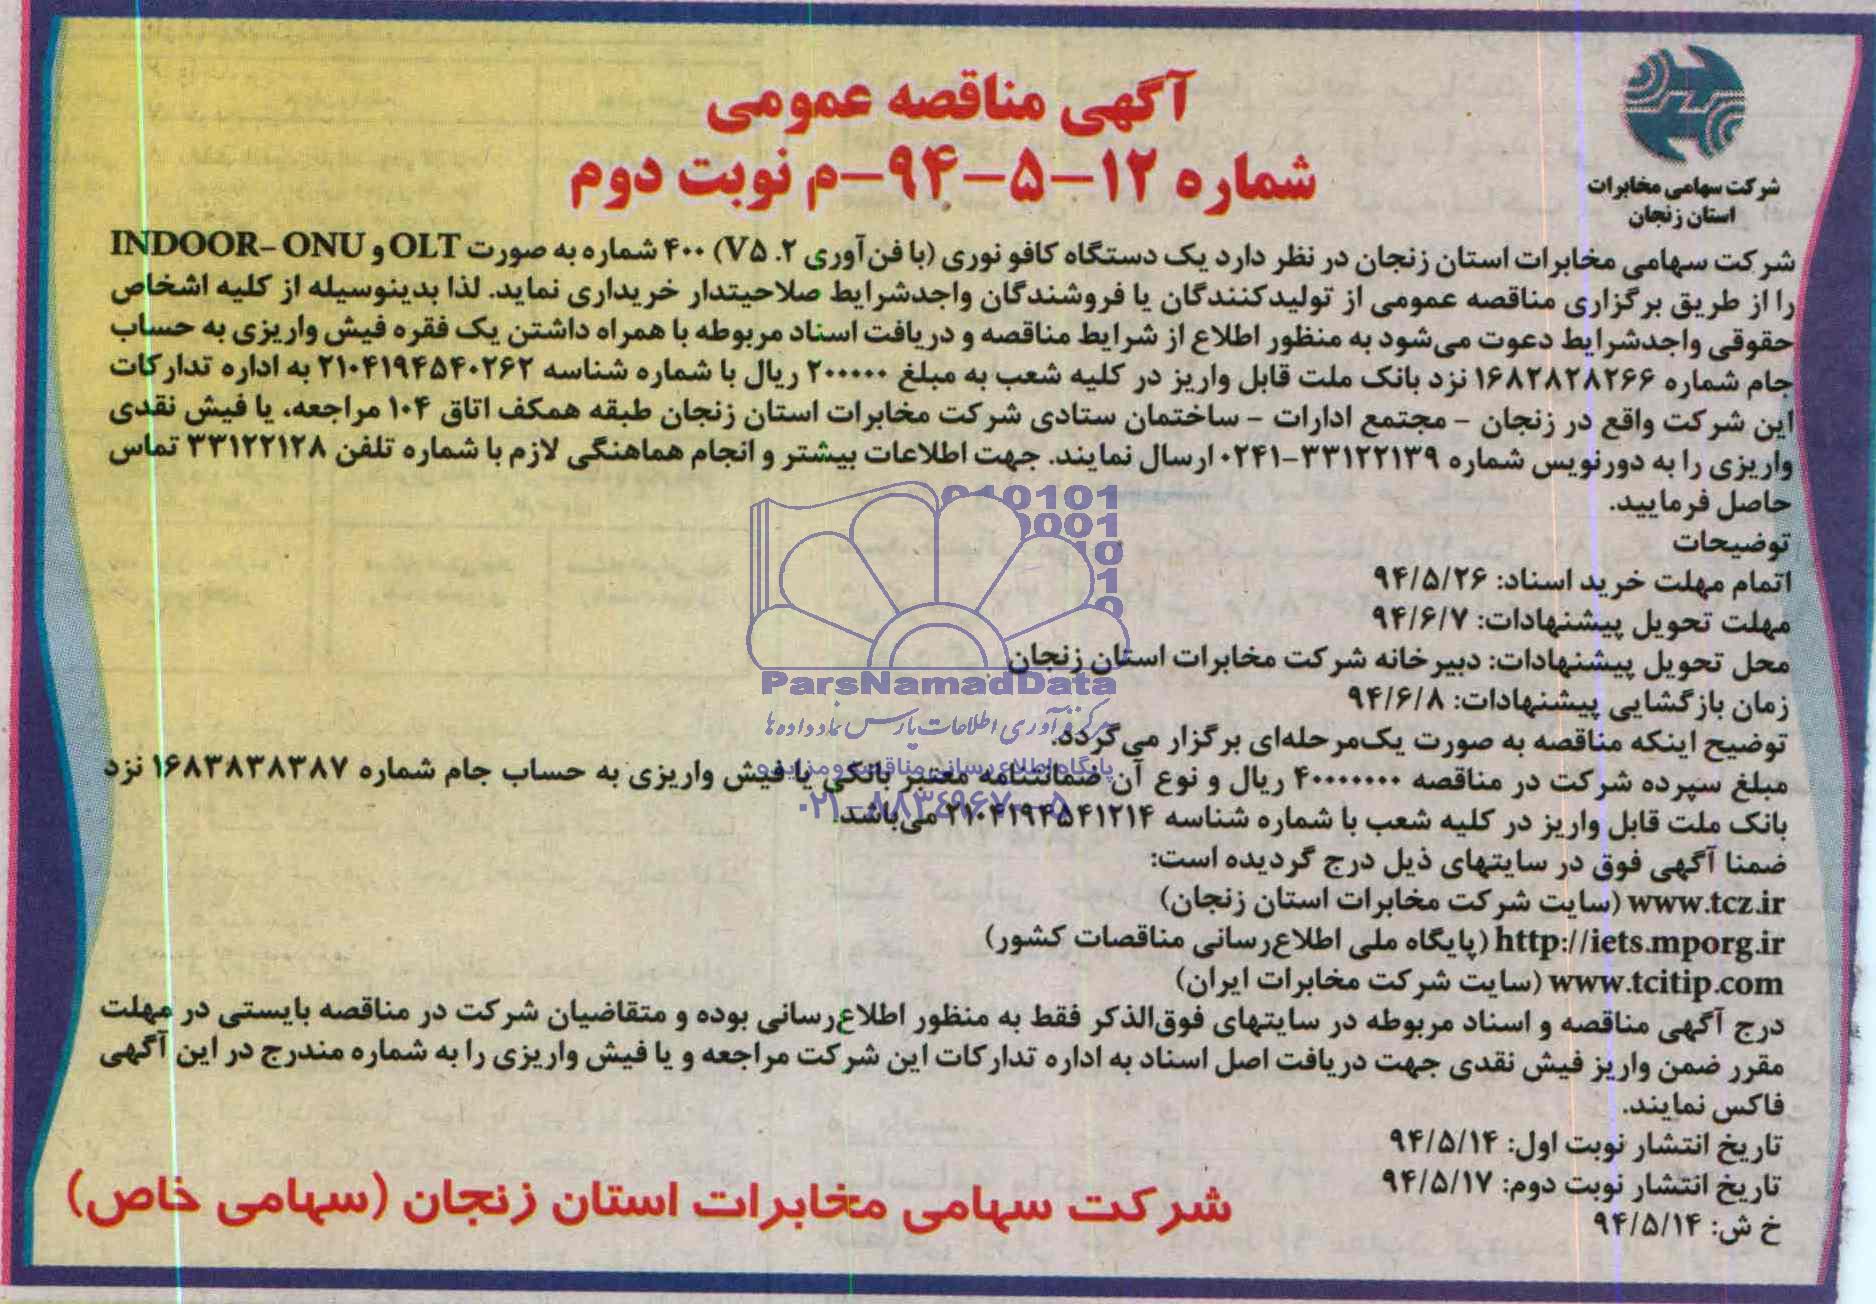 شرکت سهامی مخابرات
استان زنجان
آگهی مناقصه عمومی
شماره ۱۲-۵-۹۴-م نوبت دوم
شرکت سهامی مخابرات استان زنجان در نظر دارد یک دستگاه کافو نوری (با فن‌آوری V۵.۲) ۴۰۰ شماره به صورت OLT و INDOOR- ONU
را از طریق برگزاری مناقصه عمومی از تولیدکنندگان یا فروشندگان واجدشرایط صلاحیتدار خریداری نماید. لذا بدینوسیله از کلیه اشخاص
حقوقی واجدشرایط دعوت می‌شود به منظور اطلاع از شرایط مناقصه و دریافت اسناد مربوطه با همراه داشتن یک فقره فیش واریزی به حساب
جام شماره ۱۶۸۲۸۲۸۲۶۶ نزد بانک ملت قابل واریز در کلیه شعب به مبلغ ۲۰۰۰۰۰ ریال با شماره شناسه ۲۱۰۴۱۹۴۵۴۰۲۶۲ به اداره تدارکات
این شرکت واقع در زنجان - مجتمع ادارات - ساختمان ستادی شرکت مخابرات استان زنجان طبقه همکف اتاق ۱۰۴ مراجعه، یا فیش نقدی
واریزی را به دورنویس شماره ۳۳۱۲۲۱۳۹-۰۲۴۱ ارسال نمایند. جهت اطلاعات بیشتر و انجام هماهنگی لازم با شماره تلفن ۳۳۱۲۲۱۲۸ تماس
حاصل فرمایید.
توضیحات
اتمام مهلت خرید اسناد: ۹۴/۵/۲۶
مهلت تحویل پیشنهادات: ۹۴/۶/۷
محل تحویل پیشنهادات: دبیرخانه شرکت مخابرات استان زنجان
زمان بازگشایی پیشنهادات: ۹۴/۶/۸
توضیح اینکه مناقصه به صورت یک‌مرحله‌ای برگزار می‌گردد.
مبلغ سپرده شرکت در مناقصه ۴۰۰۰۰۰۰۰ ریال و نوع آن ضمانتنامه معتبر بانکی یا فیش واریزی به حساب جام شماره ۱۶۸۳۸۳۸۳۸۷ نزد
بانک ملت قابل واریز در کلیه شعب با شماره شناسه ۲۱۰۴۱۹۴۵۴۱۲۱۴ می‌باشد.
ضمنا آگهی فوق در سایتهای ذیل درج گردیده است:
www.tcz.ir (سایت شرکت مخابرات استان زنجان)
http://iets.mporg.ir (پایگاه ملی اطلاع‌رسانی مناقصات کشور)
www.tcitip.com (سایت شرکت مخابرات ایران)
درج آگهی مناقصه و اسناد مربوطه در سایتهای فوق‌الذکر فقط به منظور اطلاع‌رسانی بوده و متقاضیان شرکت در مناقصه بایستی در مهلت
مقرر ضمن واریز فیش نقدی جهت دریافت اصل اسناد به اداره تدارکات این شرکت مراجعه و یا فیش واریزی را به شماره مندرج در این آگهی
فاکس نمایند.
تاریخ انتشار نوبت اول: ۹۴/۵/۱۴
تاریخ انتشار نوبت دوم: ۹۴/۵/۱۷
خ ش: ۹۴/۵/۱۴
شرکت سهامی مخابرات استان زنجان (سهامی خاص)
ParsNamadData
مرکز فرآوری اطلاعات پارس نماد داده‌ها
پایگاه اطلاع رسانی مناقصه و مزایده